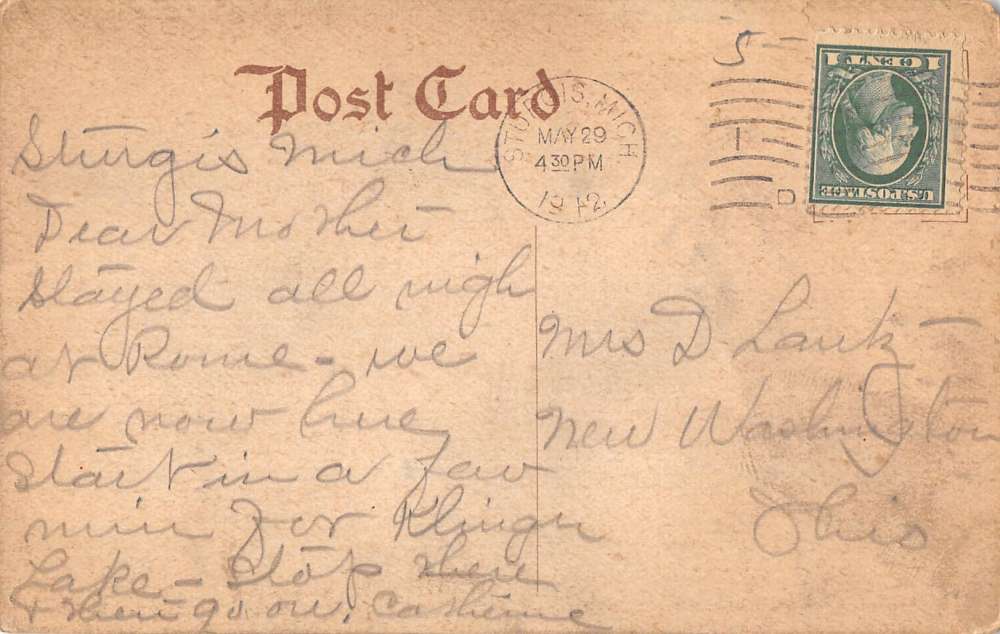 Post Card
STURGIS, MICH
MAY 29
4 30 PM
1912
1 CENT 1
U.S. POSTAGE
Sturgis Mich
Dear Mother
Stayed all nigh
at Rome - we
are now here
Start in a few
min for Klinger
Lake - Stop there
& then go on,
Mrs D Lantz
New Washington
Ohio